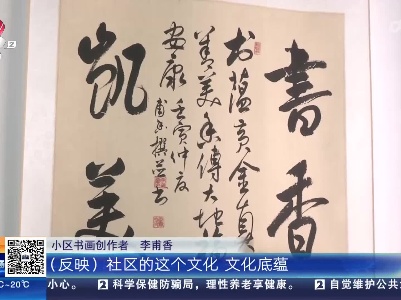 書香
凯美
书蕴黄金
善美
传大地
安康 壬寅仲夏
甫香撰并书
小区书画创作者 李甫香
（反映）社区的这个文化 文化底蕴
C~20℃ 小心。 2 科学保健防骗局，理性养老享健康。 2 自觉维护公共